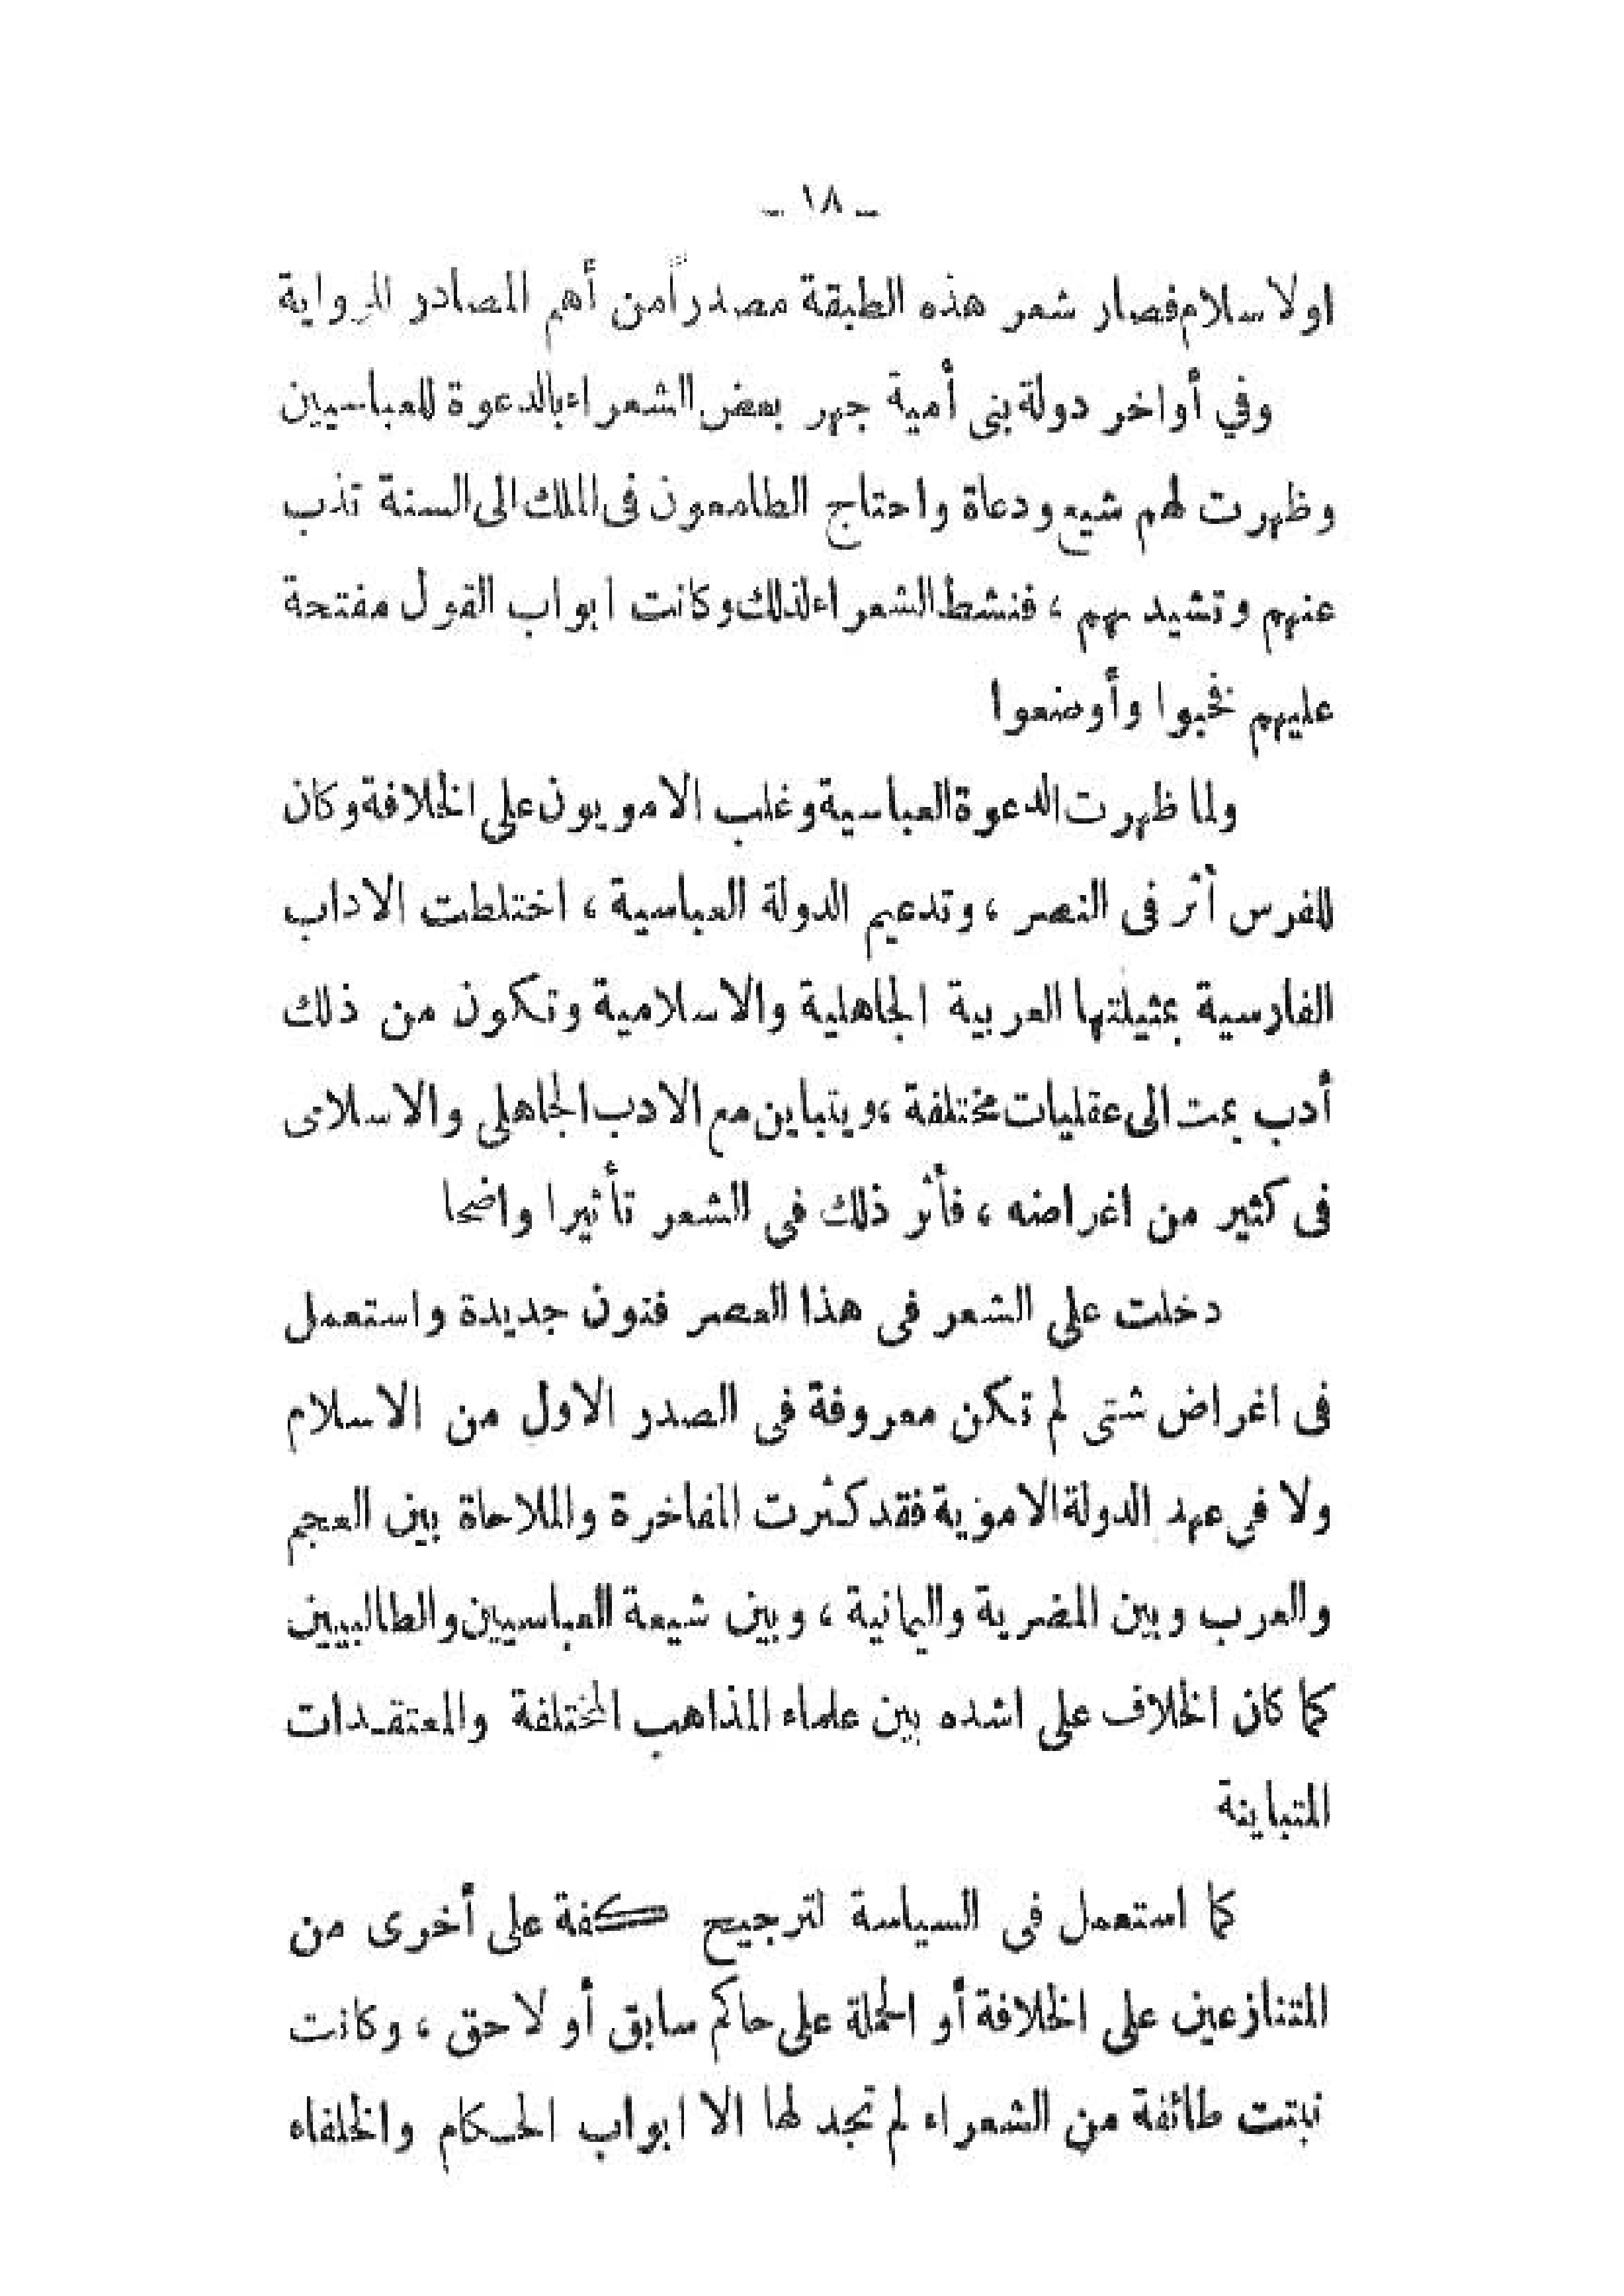 ـ ١٨ ـ
اولاسلام فصار شعر هذه الطبقة مصدراً من أهم المصادر للرواية
وفي أواخر دولة بنى أمية جهر بعض الشعراء بالدعوة للعباسيين
وظهرت لهم شيع ودعاة واحتاج الطامعون فى الملك الى السنة تذب
عنهم وتشيد بهم ، فنشط الشعراء لذلك وكانت ابواب القول مفتحة
عليهم فخبوا وأوضعوا
ولما ظهرت الدعوة العباسية وغلب الامويون على الخلافة وكان
للفرس أثر فى النصر ، وتدعيم الدولة العباسية ، اختلطت الاداب
الفارسية بمثيلتها العربية الجاهلية والاسلامية وتكون من ذلك
أدب يمت الى عقليات مختلفة ، ويتباين مع الادب الجاهلى والاسلامى
فى كثير من اغراضه ، فأثر ذلك فى الشعر تأثيرا واضحا
دخلت على الشعر فى هذا العصر فنون جديدة واستعمل
فى اغراض شتى لم تكن معروفة فى الصدر الاول من الاسلام
ولا فى عهد الدولة الاموية فقد كثرت المفاخرة والملاحاة بين العجم
والعرب وبين المضرية واليمانية ، وبين شيعة العباسيين والطالبيين
كما كان الخلاف على اشده بين علماء المذاهب المختلفة والمعتقـدات
المتباينة
كما استعمل فى السياسة لترجيح كفة على أخرى من
المتنازعين على الخلافة أو الحملة على حاكم سابق أو لاحق ، وكانت
نبتت طائفة من الشعراء لم تجد لها الا ابواب الحـكام والخلفاء